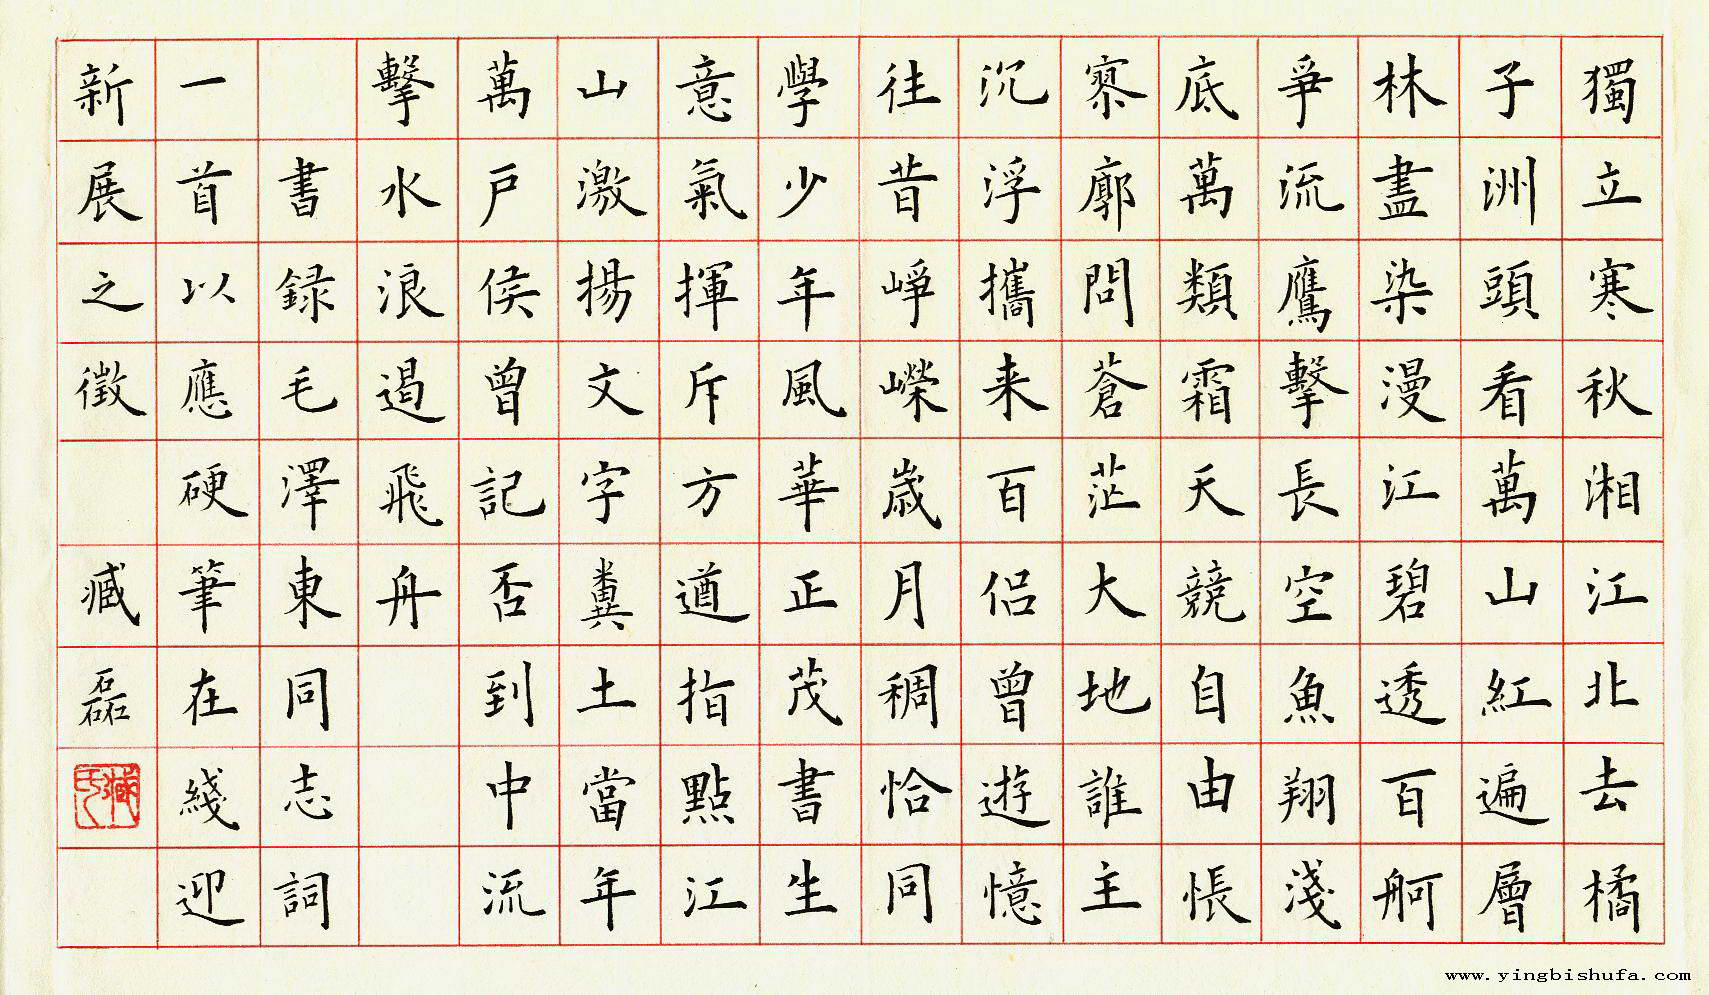 獨立寒秋湘江北去橘
子洲頭看萬山紅遍層
林盡染漫江碧透百舸
爭流鷹擊長空魚翔淺
底萬類霜天競自由悵
寥廓問蒼茫大地誰主
沉浮攜来百侣曾遊憶
往昔崢嶸歲月稠恰同
學少年風華正茂書生
意氣揮斥方遒指點江
山激揚文字糞土當年
萬户侯曾記否到中流
擊水浪遏飛舟
書録毛澤東同志詞
一首以應硬筆在綫迎
新展之徵 臧磊
臧氏
www.yingbishufa.com